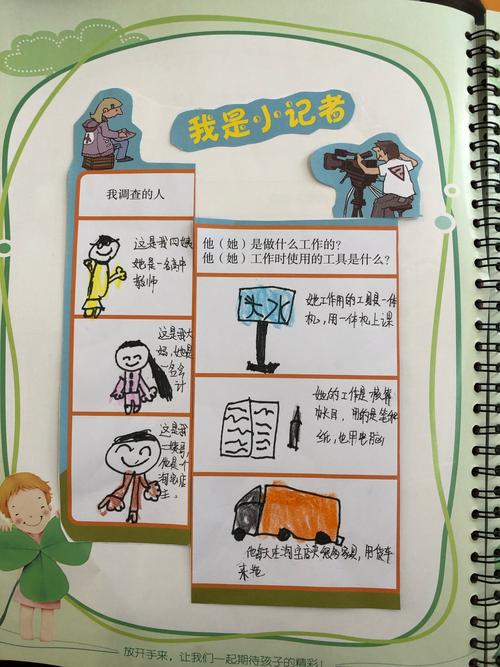 我是小记者
我调查的人
这是我
她是一名高中
教师
这是我大
妈,她是
一名会
计
这是我
他是个
淘宝店
主。
他(她)是做什么工作的?
他(她)工作时使用的工具是什么?
她工作用的工具是一体
机,用一体机上课
她的工作是核算
帐目,用的是笔和
纸,也用电脑
他每天在淘宝店卖家具,用货车
来拖
放开手来,让我们一起期待孩子的精彩!